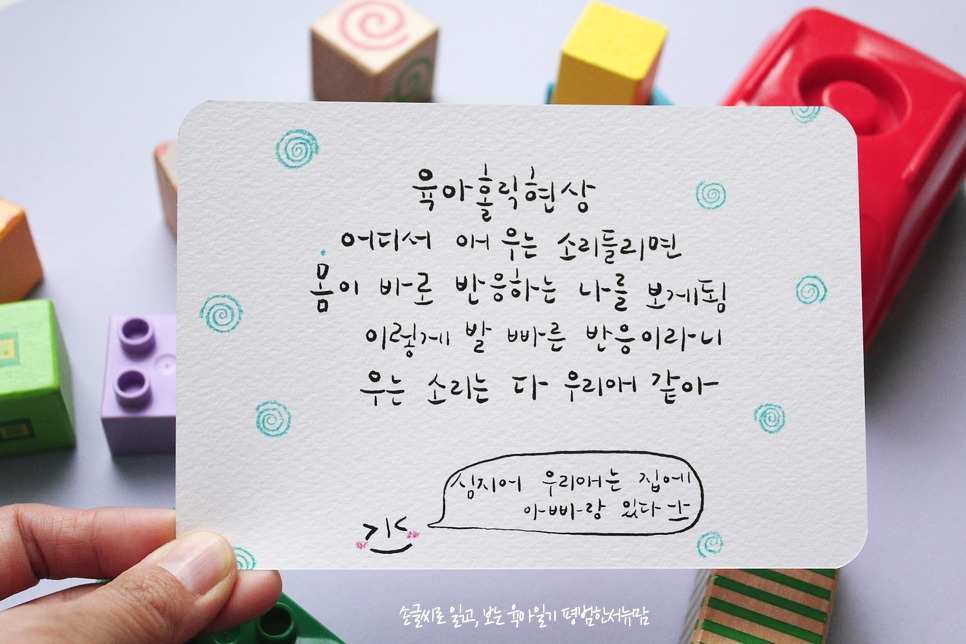 육아홀릭현상
어디서 애 우는 소리들리면
몸이 바로 반응하는 나를 보게됨
이렇게 발 빠른 반응이라니
우는 소리는 다 우리애 같아
심지어 우리애는 집에
아빠랑 있다 ㅡㅡ
손글씨로 읽고, 보는 육아일기 평범한서뉴맘